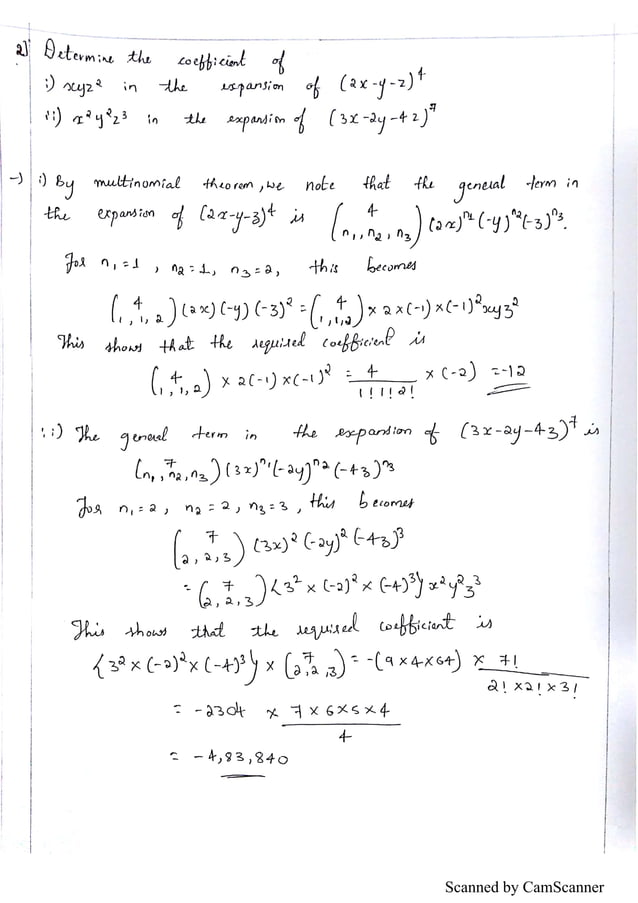 2) Determine the coefficient of
i) xyz² in the expansion of (2x-y-z)⁴
ii) x²y²z³ in the expansion of (3x-2y-4z)⁷
→) i) By multinomial theorem, we note that the general term in
the expansion of (2x-y-z)⁴ is (4 n₁, n₂, n₃) (2x)ⁿ¹ (-y)ⁿ² (-z)ⁿ³.
For n₁=1, n₂=1, n₃=2, this becomes
(4 1, 1, 2) (2x) (-y) (-z)² = (4 1,1,2) × 2 × (-1) × (-1)² xyz²
This shows that the required coefficient is
(4 1, 1, 2) × 2(-1) × (-1)² = 4 / 1! 1! 2! × (-2) = -12
ii) The general term in the expansion of (3x-2y-4z)⁷ is
(7 n₁, n₂, n₃) (3x)ⁿ¹ (-2y)ⁿ² (-4z)ⁿ³
For n₁=2, n₂=2, n₃=3, this becomes
(7 2, 2, 3) (3x)² (-2y)² (-4z)³
= (7 2, 2, 3) {3² × (-2)² × (-4)³} x²y²z³
This shows that the required coefficient is
{3² × (-2)² × (-4)³} × (7 2, 2, 3) = -(9 × 4 × 64) × 7! / 2! × 2! × 3!
= -2304 × 7 × 6 × 5 × 4 / 4
= -4,83,840
Scanned by CamScanner